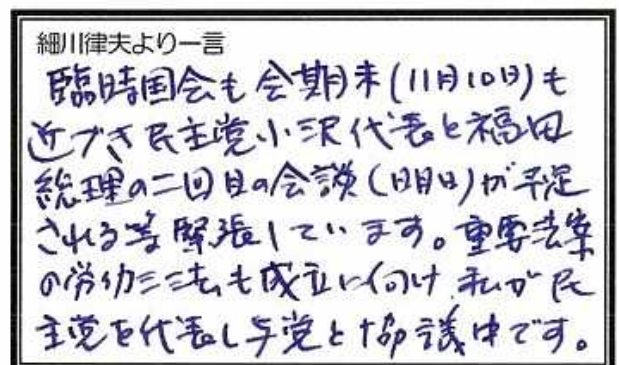 細川律夫より一言
臨時国会も会期末(11月10日)も
近づき民主党小沢代表と福田
総理の二回目の会談(2日)が予定
される等緊張しています。重要法案
の労働三法も成立に向け私が民
主党を代表し与党と協議中です。